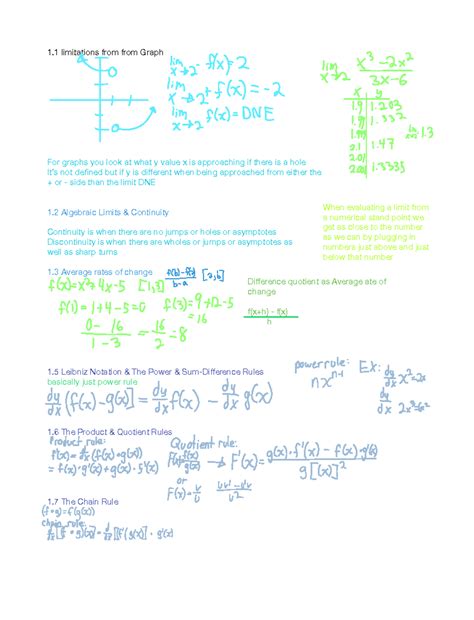 1.1 limitations from from Graph
lim x→2⁻ f(x) = 2
lim x→2⁺ f(x) = -2
lim x→2 f(x) = DNE
lim x→2 x³ - 2x² / 3x - 6
x y
1.9 1.203
1.99 1.332
1.999
2.1 1.47
2.01 1.3335
For graphs you look at what y value x is approaching if there is a hole
It's not defined but if y is different when being approached from either the
+ or - side than the limit DNE
1.2 Algebraic Limits & Continuity
Continuity is when there are no jumps or holes or asymptotes
Discontinuity is when there are wholes or jumps or asymptotes as
well as sharp turns
When evaluating a limit from
a numerical stand point we
get as close to the number
as we can by plugging in
numbers just above and just
below that number
1.3 Average rates of change
f(b)-f(a) / b-a [a,b]
f(x) = x² + 4x - 5 [1,3]
f(1) = 1 + 4 - 5 = 0 f(3) = 9 + 12 - 5
= 16
0 - 16 / 1 - 3 = -16 / -2 = 8
Difference quotient as Average ate of
change
f(x+h) - f(x)
h
1.5 Leibniz Notation & The Power & Sum-Difference Rules
basically just power rule
dy/dx (f(x) - g(x)) = dy/dx f(x) - dy/dx g(x)
power rule:
nxⁿ⁻¹
EX: dy/dx x² = 2x
1.6 The Product & Quotient Rules
Product rule:
f'(x) = d/dx (f(x) · g(x))
= f(x) · g'(x) + g(x) · f'(x)
Quotient rule:
F'(x) = g(x) · f'(x) - f(x) · g'(x) / g[(x)]²
or
F(x) = u/v vu' - uv' / v²
1.7 The Chain Rule
(f∘g)(x) = f(g(x))
chain rule: